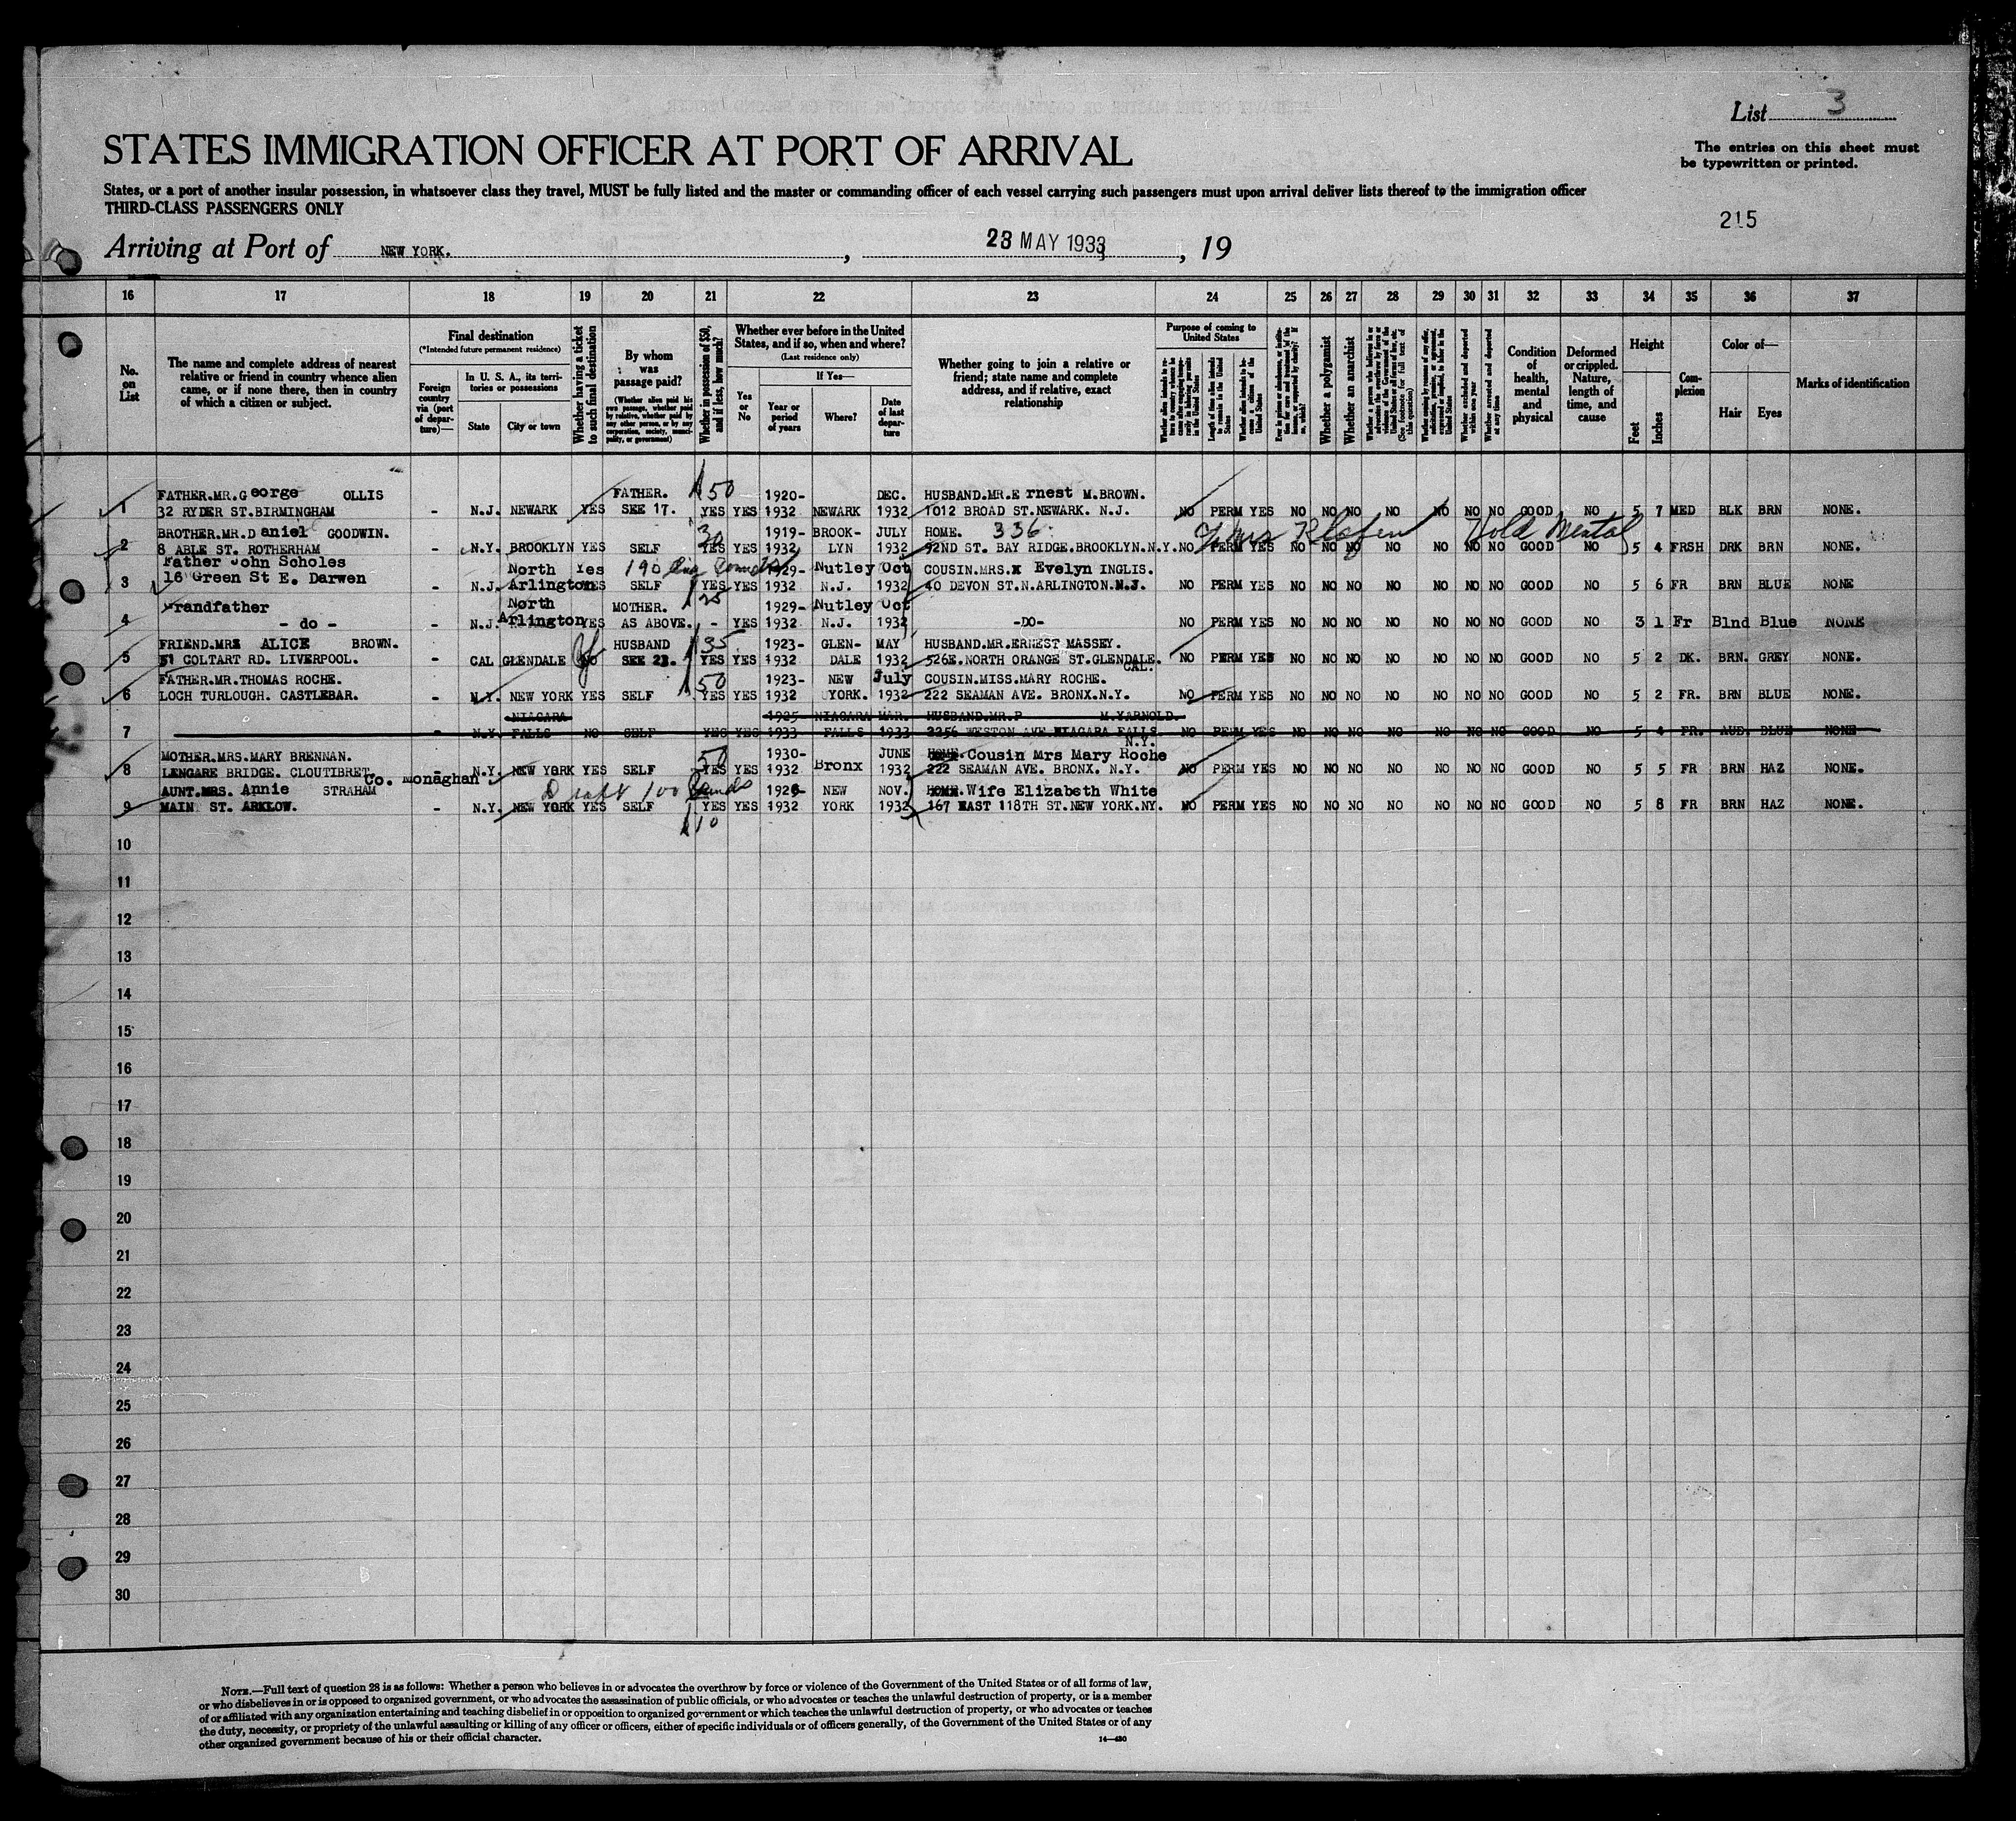 List 3
STATES IMMIGRATION OFFICER AT PORT OF ARRIVAL
The entries on this sheet must
be typewritten or printed.
States, or a port of another insular possession, in whatsoever class they travel, MUST be fully listed and the master or commanding officer of each vessel carrying such passengers must upon arrival deliver lists thereof to the immigration officer
THIRD-CLASS PASSENGERS ONLY
215
Arriving at Port of NEW YORK. , 23 MAY 1933 , 19
16 17 18 19 20 21 22 23 24 25 26 27 28 29 30 31 32 33 34 35 36 37
No. on List
The name and complete address of nearest relative or friend in country whence alien came, or if none there, then in country of which a citizen or subject.
Final destination
(*Intended future permanent residence)
Foreign country via (port of departure)—
In U. S. A., its territories or possessions
State
City or town
Whether having a ticket to such final destination
By whom was passage paid?
(Whether alien paid his own passage, whether paid by relative, whether paid by any other person, or by any corporation, society, municipality, or government)
Whether in possession of $50, and if less, how much?
Whether ever before in the United States, and if so, when and where?
(Last residence only)
Yes or No
If Yes—
Year or period of years
Where?
Date of last departure
Whether going to join a relative or friend; state name and complete address, and if relative, exact relationship
Purpose of coming to United States
Length of time alien intends to remain in the United States
Whether alien intends to become a citizen of the United States
Whether a polygamist
Whether an anarchist
Whether excluded and deported within one year
Whether arrested and deported at any time
Condition of health, mental and physical
Deformed or crippled. Nature, length of time, and cause
Height
Feet
Inches
Complexion
Color of—
Hair
Eyes
Marks of identification
FATHER.MR.George OLLIS FATHER. $50 1920- DEC. HUSBAND.MR.Ernest M.BROWN.
1 32 RYDER ST.BIRMINGHAM - N.J. NEWARK YES SEE 17. YES YES 1932 NEWARK 1932 1012 BROAD ST.NEWARK. N.J. NO PERM YES NO NO NO NO NO NO NO GOOD NO 5 7 MED BLK BRN NONE.
BROTHER.MR.Daniel GOODWIN. 30 1919- BROOK- JULY HOME. 336. Hold Mental
2 8 ABLE ST. ROTHERHAM - N.Y. BROOKLYN YES SELF YES YES 1932 LYN 1932 52ND ST. BAY RIDGE.BROOKLYN.N.Y. NO PERM YES NO NO NO NO NO NO NO GOOD NO 5 4 FRSH DRK BRN NONE.
Father John Scholes North Yes 190 1929- Nutley Oct COUSIN.MRS.x Evelyn INGLIS.
3 16 Green St E. Darwen - N.J. Arlington YES SELF YES YES 1932 N.J. 1932 40 DEVON ST.N.ARLINGTON.N.J. NO PERM YES NO NO NO NO NO NO NO GOOD NO 5 6 FR BRN BLUE NONE
Grandfather North MOTHER. $25 1929- Nutley Oct
4 - do - - N.J. Arlington YES AS ABOVE. - YES 1932 N.J. 1932 -DO- NO PERM YES NO NO NO NO NO NO NO GOOD NO 3 1 Fr Blnd Blue NONE
FRIEND.MRS ALICE BROWN. HUSBAND $35 1923- GLEN- MAY HUSBAND.MR.ERNEST MASSEY.
5 51 COLTART RD. LIVERPOOL. - CAL GLENDALE NO SEE 23. YES YES 1932 DALE 1932 526E.NORTH ORANGE ST.GLENDALE. CAL. NO PERM YES NO NO NO NO NO NO NO GOOD NO 5 2 DK. BRN. GREY NONE.
FATHER.MR.THOMAS ROCHE. $50 1923- NEW July COUSIN.MISS.MARY ROCHE.
6 LOCH TURLOUGH. CASTLEBAR. - N.Y. NEW YORK YES SELF YES YES 1932 YORK. 1932 222 SEAMAN AVE. BRONX.N.Y. NO PERM YES NO NO NO NO NO NO NO GOOD NO 5 2 FR. BRN BLUE NONE.
NIAGARA 1925- NIAGARA MAR. HUSBAND.MR.P M.YARNOLD.
7 - N.Y. FALLS NO SELF YES YES 1933 FALLS 1933 2256 WESTON AVE.NIAGARA FALLS. N.Y. NO PERM YES NO NO NO NO NO NO NO GOOD NO 5 4 FR. AUD. BLUE NONE
MOTHER.MRS.MARY BRENNAN. 50 1930- JUNE HOME. Cousin Mrs Mary Roche
8 LENGARE BRIDGE. CLOUTIBRET. Co. Monaghan - N.Y. NEW YORK YES SELF YES YES 1932 Bronx 1932 222 SEAMAN AVE. BRONX. N.Y. NO PERM YES NO NO NO NO NO NO NO GOOD NO 5 5 FR BRN HAZ NONE.
AUNT.MRS. Annie STRAHAM Draft 100 Pounds 1926- NEW NOV. HOME. Wife Elizabeth White
9 MAIN ST. ARKLOW. - N.Y. NEW YORK YES SELF YES YES 1932 YORK 1932 167 EAST 118TH ST.NEW YORK.NY. NO PERM YES NO NO NO NO NO NO NO GOOD NO 5 8 FR BRN HAZ NONE.
$10
10
11
12
13
14
15
16
17
18
19
20
21
22
23
24
25
26
27
28
29
30
NOTE.—Full text of question 28 is as follows: Whether a person who believes in or advocates the overthrow by force or violence of the Government of the United States or of all forms of law,
or who disbelieves in or is opposed to organized government, or who advocates the assassination of public officials, or who advocates or teaches the unlawful destruction of property, or is a member
of or affiliated with any organization entertaining and teaching disbelief in or opposition to organized government or which teaches the unlawful destruction of property, or who advocates or teaches
the duty, necessity, or propriety of the unlawful assaulting or killing of any officer or officers, either of specific individuals or of officers generally, of the Government of the United States or of any
other organized government because of his or their official character.
14—430